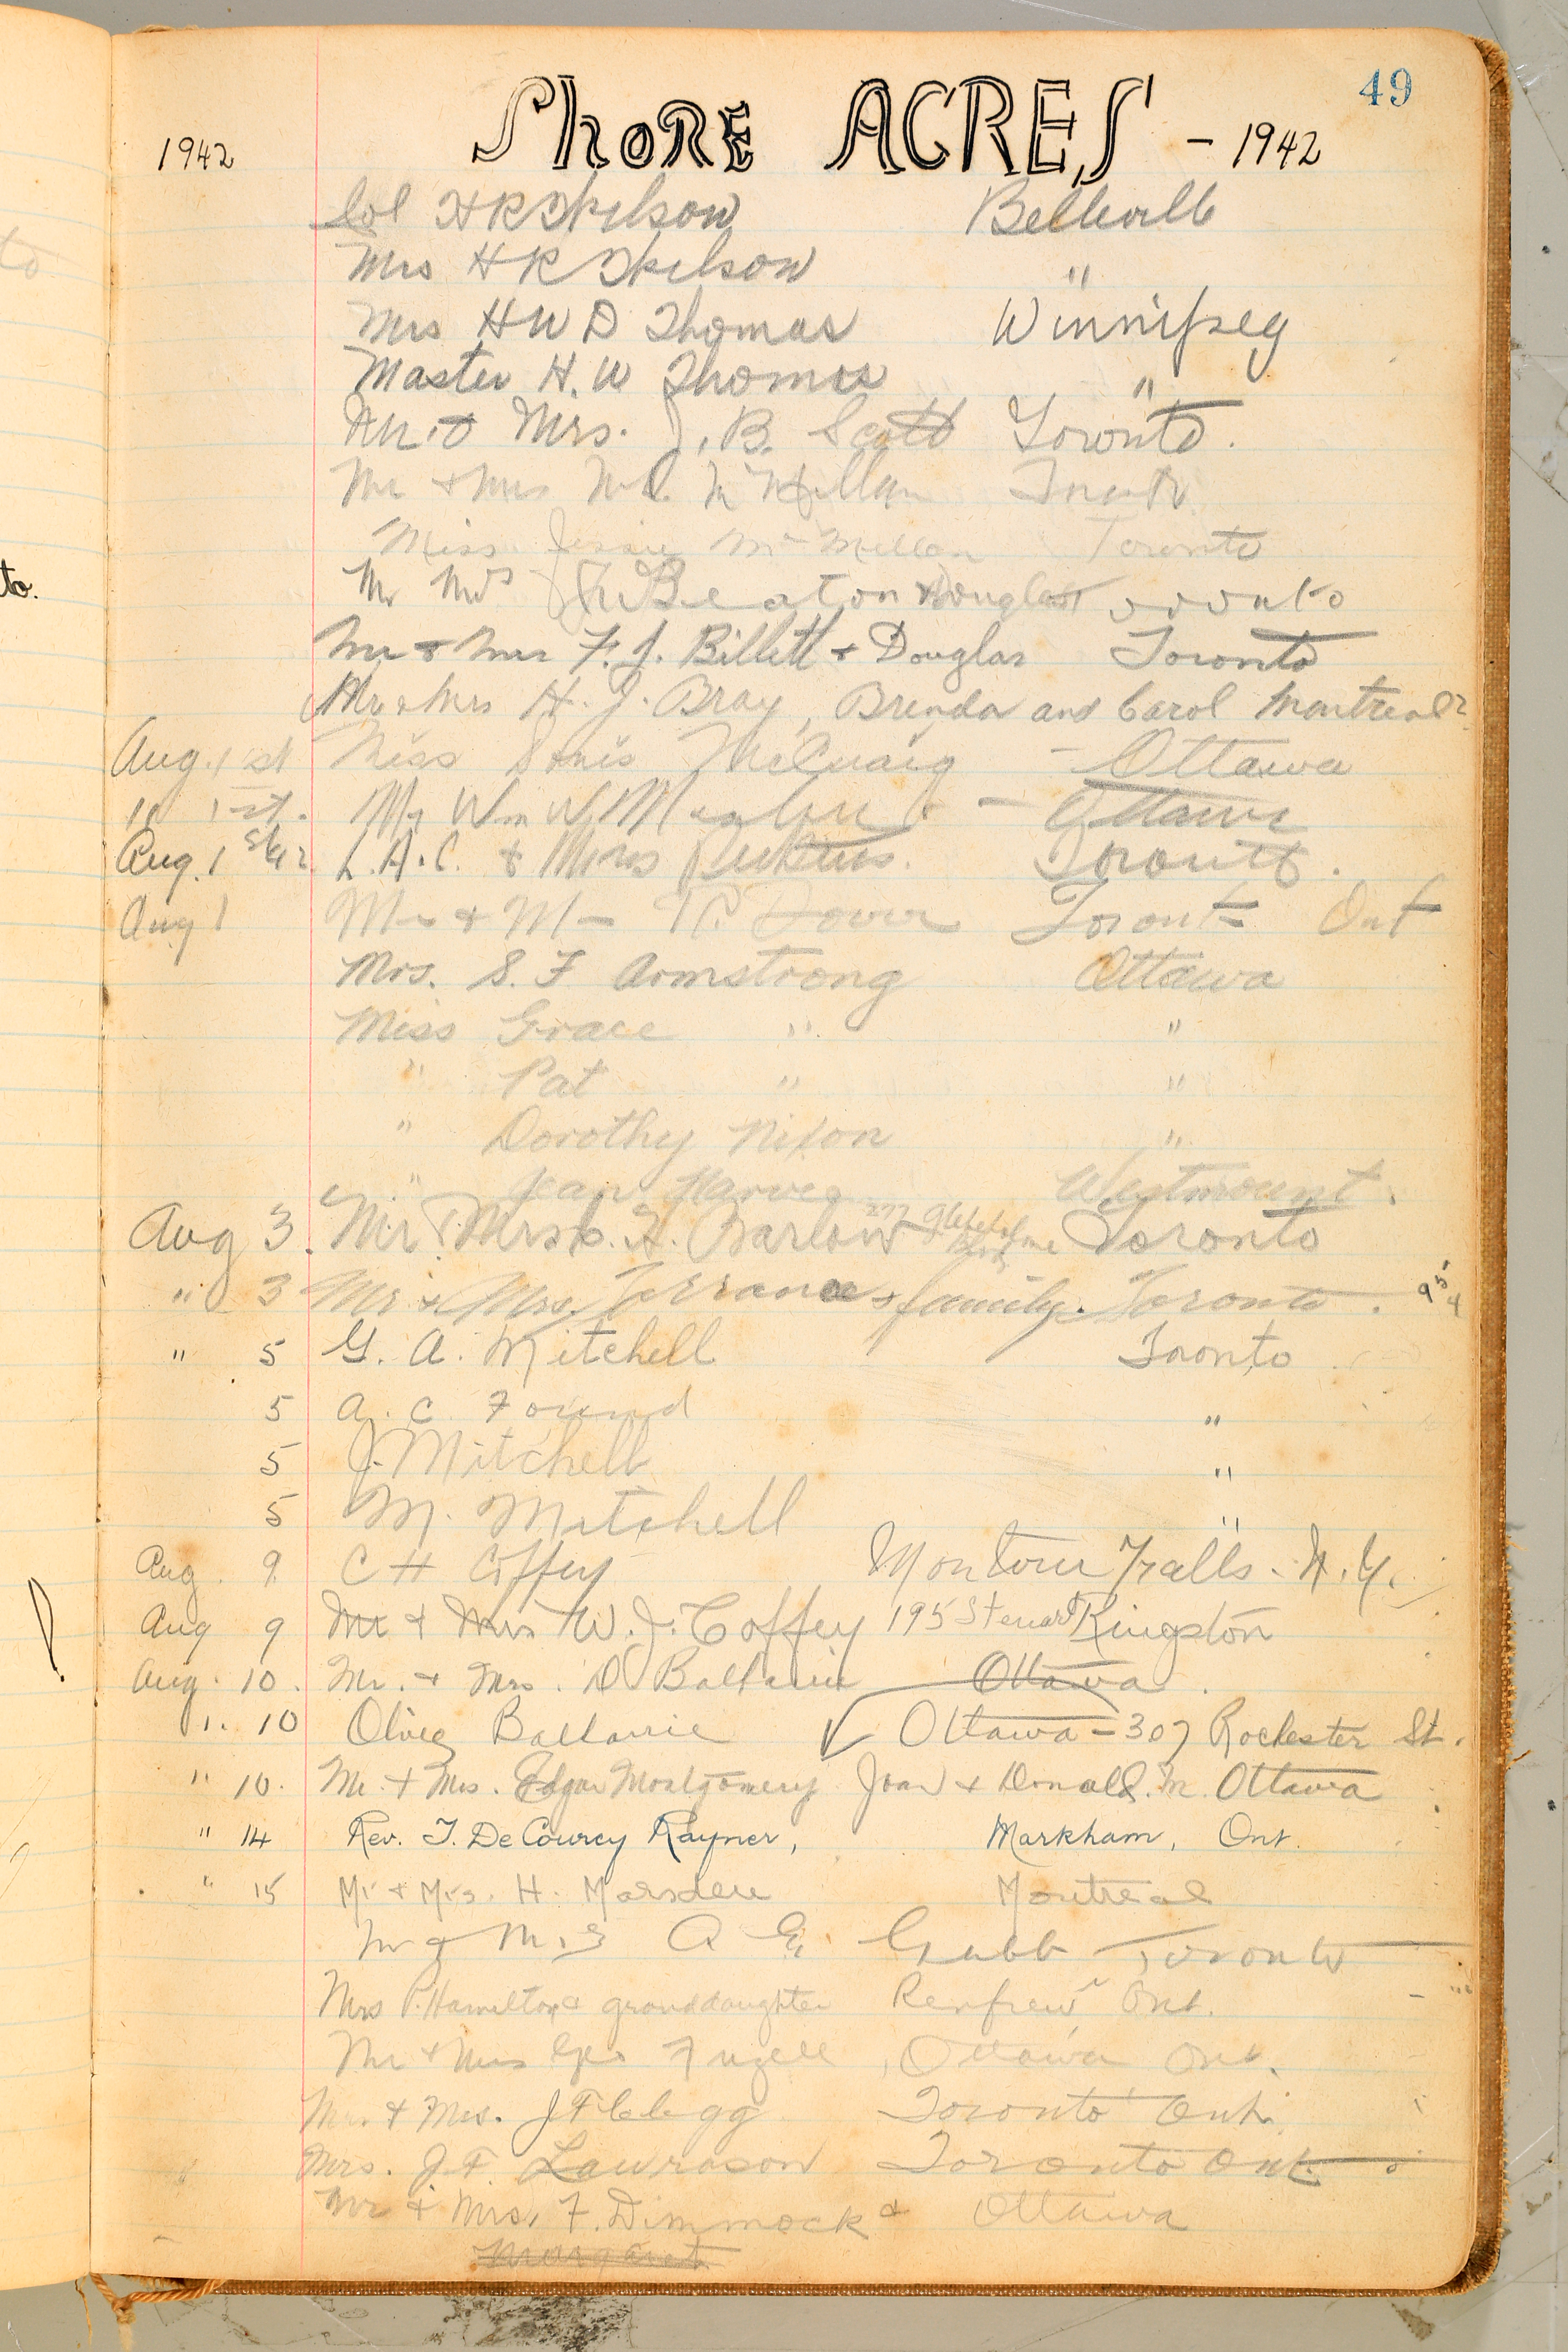 49
1942 SHORE ACRES - 1942
Col H R Skilson Belleville
Mrs H R Skilson "
Mrs H W D Thomas Winnipeg
Master H. W Thomas "
Mr. & Mrs. J. B. Scott Toronto.
Mr & Mrs McMillan Toronto
Miss Jessie McMillan Toronto
Mr Mrs Beaton & Douglas Toronto
Mr & Mrs F. J. Billett & Douglas Toronto
Mr & Mrs H. J. Bray, Brenda and Carol Montreal
Aug. 1 st Miss Doris McCuaig - Ottawa
" 1st. Mr Wm W - Ottawa
Aug. 1 st/42 L.A.C. & Mrs Toronto.
Aug 1 Mr & Mrs Toronto Ont
Mrs. S. F Armstrong Ottawa
Miss Grace " "
" Pat " "
" Dorothy Nixon "
" Jean Harvey Westmount.
Aug 3. Mr & Mrs C. H. Barlow 277 Toronto
" 3 Mr & Mrs. Torrance & family. Toronto. 95
4
" 5 G. A. Mitchell Toronto
5 A. C. Found "
5 J. Mitchell "
5 M. Mitchell "
Aug. 9 C H Coffey Montour Falls. N.Y.
Aug 9 Mr & Mrs W. J. Coffey 195 Stewart Kingston
Aug. 10. Mr. & Mrs. D Ballarie Ottawa.
" 10 Ballarie Ottawa - 307 Rochester St.
" 10. Mr. & Mrs. Edgar Montgomery Joan & Donald. M. Ottawa
" 14 Rev. T. DeCourcy Rayner, Markham, Ont.
" 15 Mr & Mrs. H. Marsden Montreal
Mr & Mrs A E. Grubb Toronto
Mrs P. Hamilton & granddaughter Renfrew Ont.
Mr & Mrs Geo Fuzell, Ottawa Ont.
Mr. & Mrs. J F Clegg Toronto Ont.
Mrs. J. F. Lawrason Toronto Ont.
Mr & Mrs. F. Dimmock & Ottawa
Margaret
to.